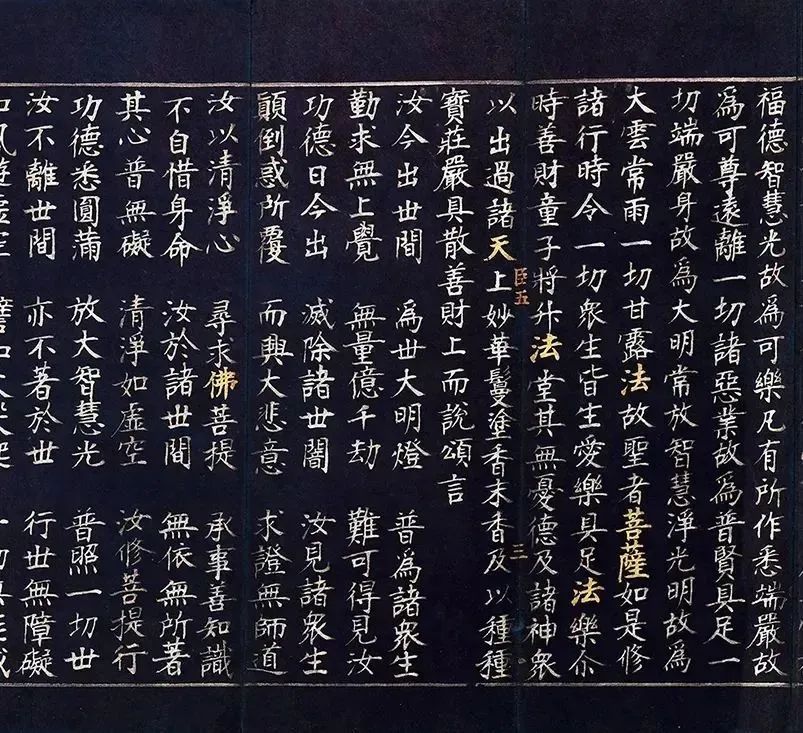 福德智慧光故為可樂凡有所作悉端嚴故
為可尊遠離一切諸惡業故為普賢具足一
切端嚴身故為大明常放智慧淨光明故為
大雲常雨一切甘露法故聖者菩薩如是修
諸行時令一切衆生皆生愛樂具足法樂尒
時善財童子將升法堂其無憂德及諸神衆
臣五 三
以出過諸天上妙華鬘塗香末香及以種種
寶莊嚴具散善財上而說頌言
汝今出世間 為世大明燈 普為諸衆生
勤求無上覺 無量億千劫 難可得見汝
功德日今出 滅除諸世闇 汝見諸衆生
顛倒惑所覆 而興大悲意 求證無師道
汝以清淨心 尋求佛菩提 承事善知識
不自惜身命 汝於諸世間 無依無所著
其心普無礙 清淨如虛空 汝修菩提行
功德悉圓滿 放大智慧光 普照一切世
汝不離世間 亦不著於世 行世無障礙